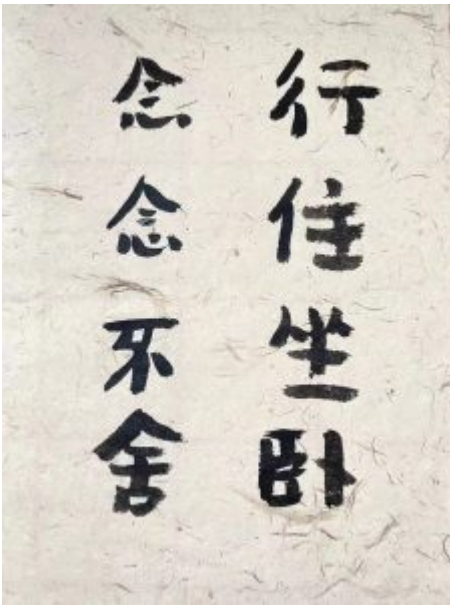 行住坐卧
念念不舍